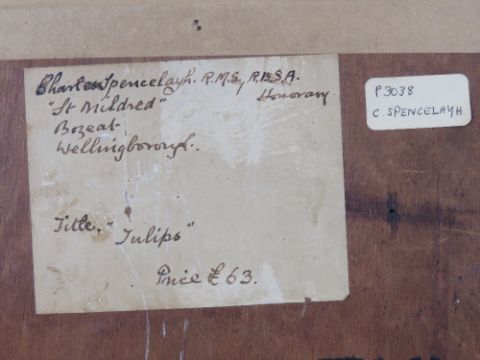 Charles Spencelayh. R.M.S., R.B.S.A.
Honorary
"St Mildred"
Bozeat
Wellingborough.
Title. "Tulips"
Price £63.
P3038
C. SPENCELAYH